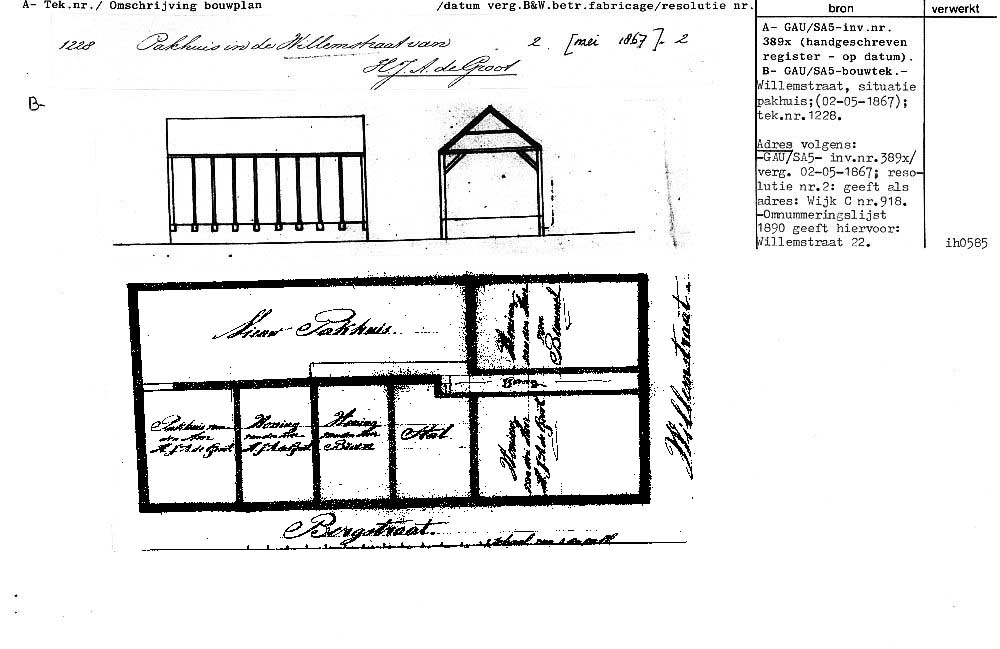 A- Tek.nr./ Omschrijving bouwplan /datum verg.B&W.betr.fabricage/resolutie nr.
bron
verwerkt
1228 Pakhuis in de Willemstraat van 2 [mei 1867]. 2
H.J.A. de Groot
A- GAU/SA5-inv.nr.
389x (handgeschreven
register - op datum).
B- GAU/SA5-bouwtek.-
Willemstraat, situatie
pakhuis;(02-05-1867);
tek.nr.1228.
Adres volgens:
-GAU/SA5- inv.nr.389x/
verg. 02-05-1867; reso-
lutie nr.2: geeft als
adres: Wijk C nr.918.
-Omnummeringslijst
1890 geeft hiervoor:
Willemstraat 22.
ih0585
B-
Nieuw Pakhuis.
Woning
van den Heer
van
Bemmel
Willemstraat
Gang
Pakhuis van
den Heer
H.J.A. de Groot
Woning
van den Heer
H.J.A. de Groot
Woning
van den Heer
Stal
Woning
van den Heer
H.J.A. de Groot
Bergstraat.
Schaal van